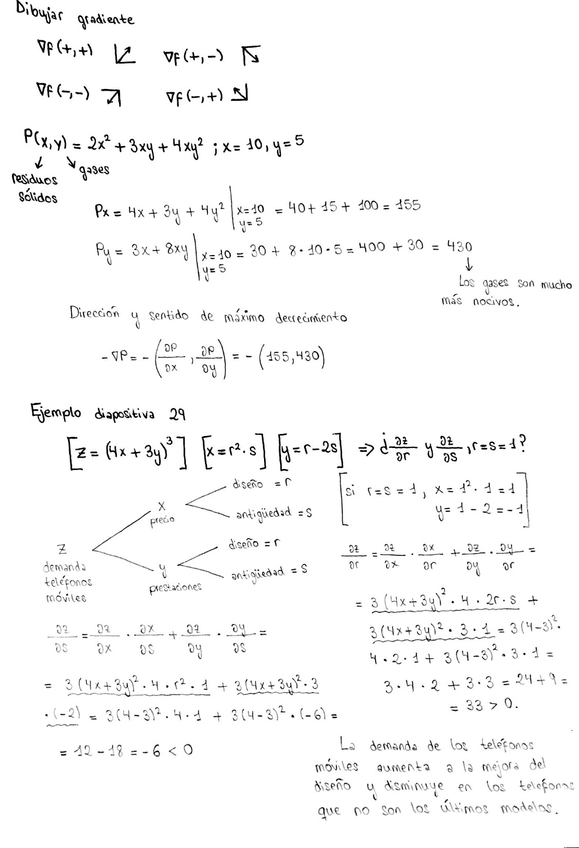 Dibujar gradiente
∇f(+,+) ∇f(+,-)
∇f(-,-) ∇f(-,+)
P(x,y) = 2x² + 3xy + 4xy² ; x = 10, y = 5
residuos sólidos
gases
Px = 4x + 3y + 4y² | x=10 y=5 = 40 + 15 + 100 = 155
Py = 3x + 8xy | x=10 y=5 = 30 + 8·10·5 = 400 + 30 = 430
Los gases son mucho
más nocivos.
Dirección y sentido de máximo decrecimiento
-∇P = -(∂P/∂x, ∂P/∂y) = -(155,430)
Ejemplo diapositiva 29
[z = (4x + 3y)³] [x = r²·s] [y = r-2s] => ¿∂z/∂r y ∂z/∂s, r=s=1?
[si r=s=1, x = 1²·1 = 1
y = 1 - 2 = -1]
z
demanda
teléfonos
móviles
x
precio
diseño = r
antigüedad = s
y
prestaciones
diseño = r
antigüedad = s
∂z/∂s = ∂z/∂x · ∂x/∂s + ∂z/∂y · ∂y/∂s =
= 3(4x+3y)²·4·r²·1 + 3(4x+3y)²·3
·(-2) = 3(4-3)²·4·1 + 3(4-3)²·(-6) =
= 12 - 18 = -6 < 0
∂z/∂r = ∂z/∂x · ∂x/∂r + ∂z/∂y · ∂y/∂r =
= 3(4x+3y)²·4·2r·s +
3(4x+3y)²·3·1 = 3(4-3)²·
4·2·1 + 3(4-3)²·3·1 =
3·4·2 + 3·3 = 24+9 =
= 33 > 0.
La demanda de los teléfonos
móviles aumenta a la mejora del
diseño y disminuye en los telefonos
que no son los últimos modelos.